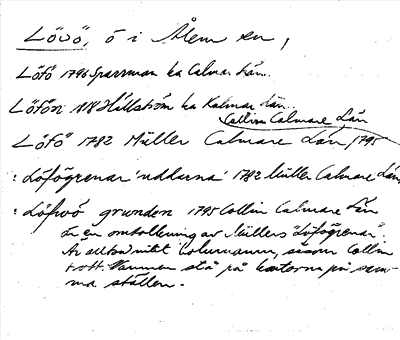 Lövö, ö i Ålem sn,
Löfö 1796 Sparrman ka Calmar Län.
Löfön 1818 Hällström ka Kalmar Län.
Collin Calmare Län
Löfö 1782 Müller Calmare Län, 1795
: Löfögrenar 'uddarna' 1782 Müller Calmare Län
: Löfwö grunden 1795 Collin Calmare Län
är en omtolkning av Müllers "Löfögrenar".
såsom Collin
stå på kartorna på sam-
ma ställen.